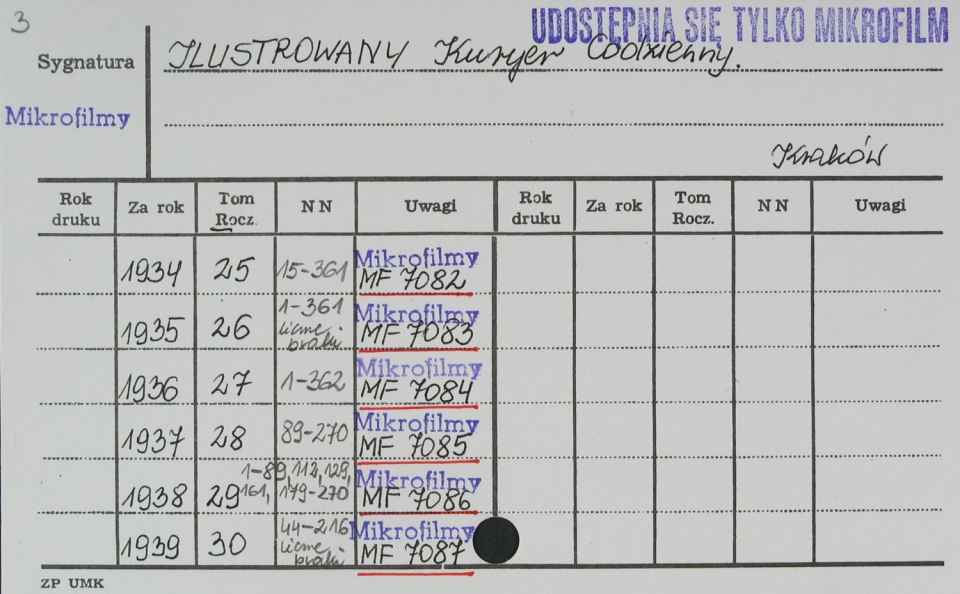 3
UDOSTĘPNIA SIĘ TYLKO MIKROFILM
Sygnatura
ILUSTROWANY Kuryer Codzienny.
Mikrofilmy
Kraków
Rok druku Za rok Tom Rocz. NN Uwagi Rok druku Za rok Tom Rocz. NN Uwagi
1934 25 15-361 Mikrofilmy MF 7082
1935 26 1-361 liczne braki Mikrofilmy MF 7083
1936 27 1-362 Mikrofilmy MF 7084
1937 28 89-270 Mikrofilmy MF 7085
1938 29 1-89, 112, 129, 161, 179-270 Mikrofilmy MF 7086
1939 30 44-216 liczne braki Mikrofilmy MF 7087
ZP UMK